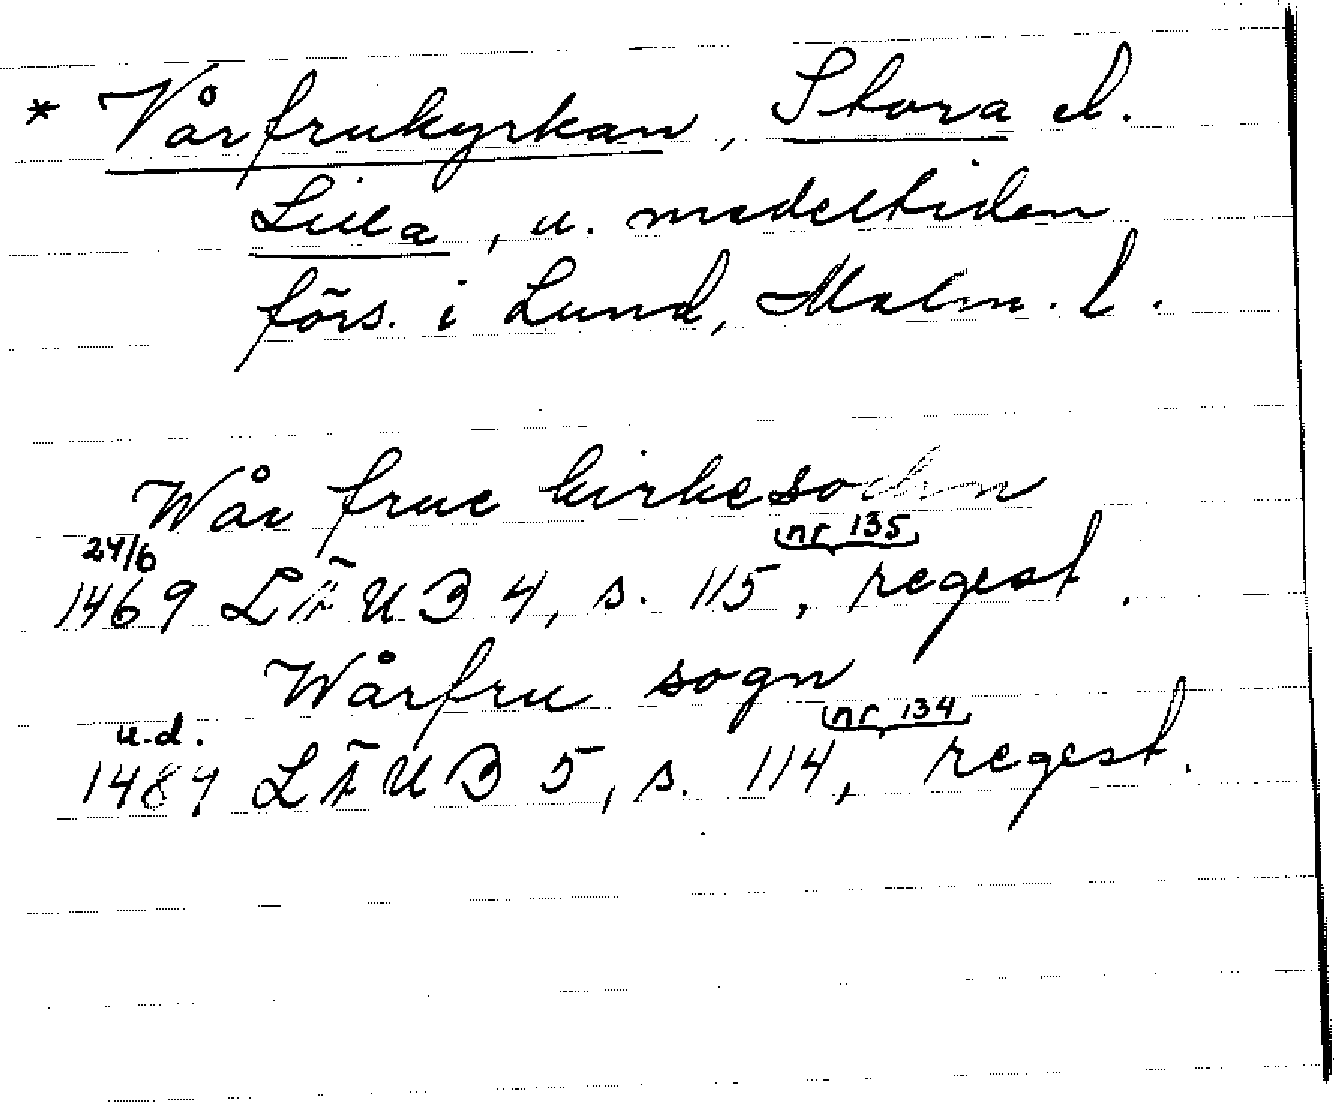 * Vårfrukyrkan, Stora el.
Lilla, u. medeltiden
förs. i Lund, Malm. l.
Wår frue kirkesochn
24/6 nr 135
1469 LÄUB 4, s. 115, regest.
Wårfru sogn
u.d. nr 134
1484 LÄUB 5, s. 114, regest.